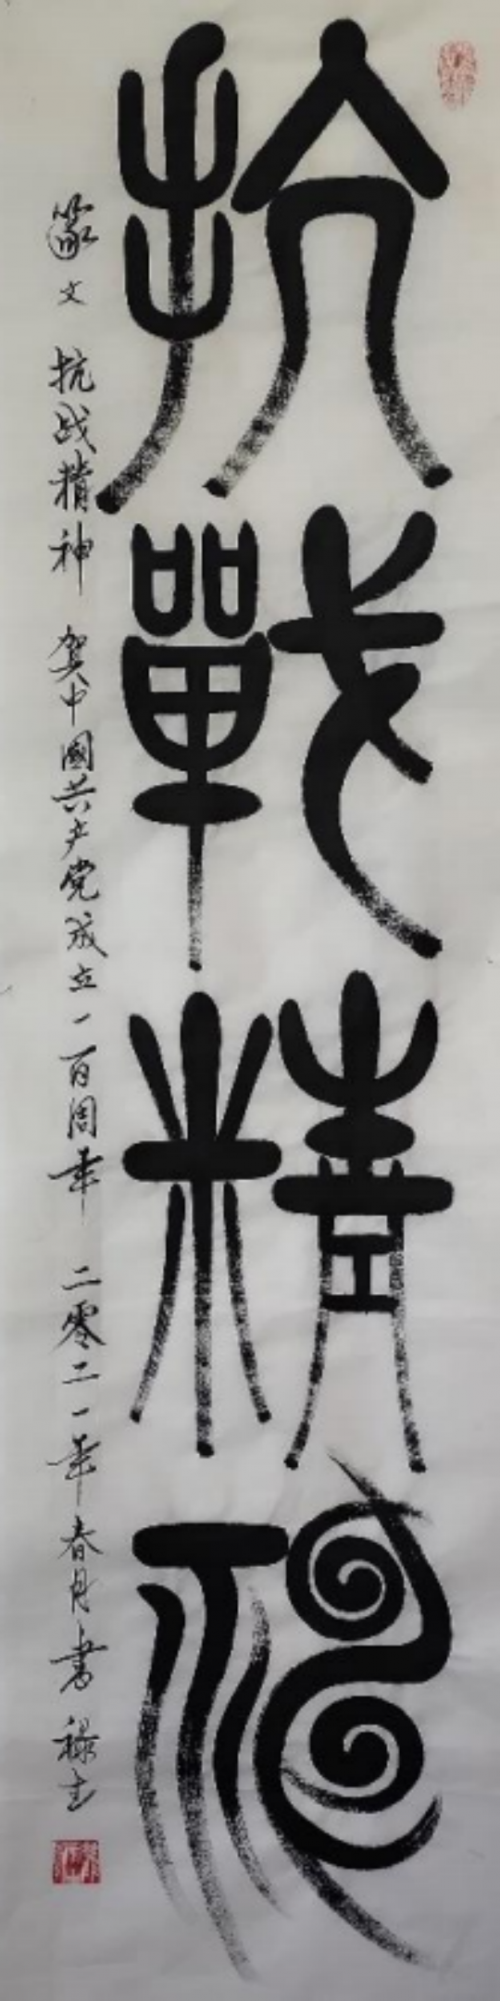 抗戰精神
篆文 抗战精神 贺中國共产党成立一百周年 二零二一年春月书